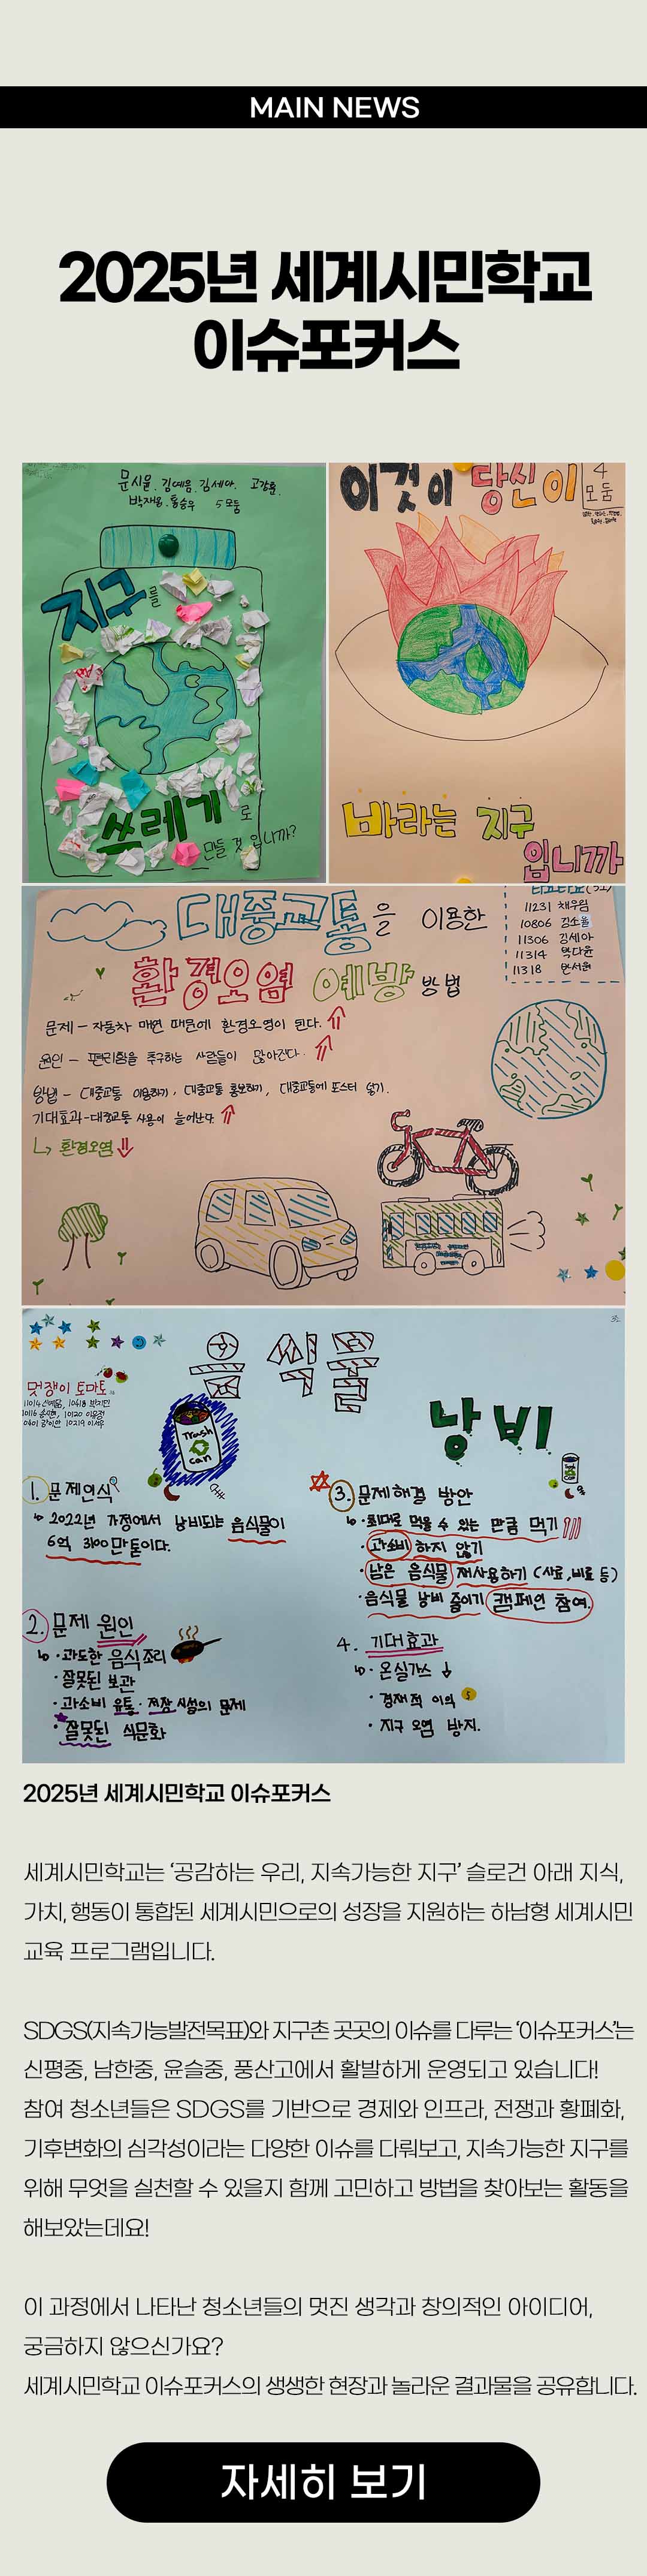 MAIN NEWS
2025년 세계시민학교
이슈포커스
문시율. 김예음. 김세아. 고강훈.
박재용. 홍승우 5모둠
지구를
쓰레기로
만들 것 입니까?
이것이 당신이
4
모둠
바라는 지구
입니까
대중교통을 이용한
환경오염 예방 방법
11231 채우림
10806 김소율
11306 김세아
11314 박다윤
11318 반서원
문제 - 자동차 매연 때문에 환경오염이 된다. ⇑
원인 - 편리함을 추구하는 사람들이 많아진다. ⇑
방법 - 대중교통 이용하기, 대중교통 홍보하기, 대중교통에 포스터 붙기.
기대효과 - 대중교통 사용이 늘어난다 ⇑
↳ 환경오염 ⇓
음식물
낭비
멋쟁이 토마토
Trash
can
1. 문제인식
↳ 2022년 가정에서 낭비되는 음식물이
6억 3100만톤이다.
2. 문제 원인
↳ · 과도한 음식조리
· 잘못된 보관
· 과소비 유통 · 저장 시설의 문제
· 잘못된 식문화
3. 문제해결 방안
↳ · 최대로 먹을 수 있는 만큼 먹기 !!!
· 과소비 하지 않기
· 남은 음식물 재사용하기 (사료, 비료 등)
· 음식물 낭비 줄이기 캠페인 참여.
4. 기대효과
↳ · 온실가스 ↓
· 경제적 이익
· 지구 오염 방지.
2025년 세계시민학교 이슈포커스
세계시민학교는 ‘공감하는 우리, 지속가능한 지구’ 슬로건 아래 지식,
가치, 행동이 통합된 세계시민으로의 성장을 지원하는 하남형 세계시민
교육 프로그램입니다.
SDGS(지속가능발전목표)와 지구촌 곳곳의 이슈를 다루는 ‘이슈포커스’는
신평중, 남한중, 윤슬중, 풍산고에서 활발하게 운영되고 있습니다!
참여 청소년들은 SDGS를 기반으로 경제와 인프라, 전쟁과 황폐화,
기후변화의 심각성이라는 다양한 이슈를 다뤄보고, 지속가능한 지구를
위해 무엇을 실천할 수 있을지 함께 고민하고 방법을 찾아보는 활동을
해보았는데요!
이 과정에서 나타난 청소년들의 멋진 생각과 창의적인 아이디어,
궁금하지 않으신가요?
세계시민학교 이슈포커스의 생생한 현장과 놀라운 결과물을 공유합니다.
자세히 보기